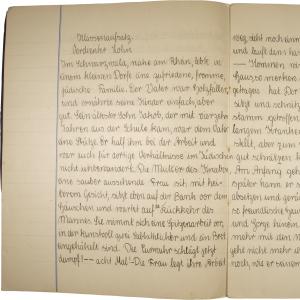 Klassenaufsatz.
Verdienter Lohn
Im Schwarzwald, nahe am Rhein, lebte in
einem kleinen Dorfe eine zufriedene, fromme,
jüdische Familie. Der Vater war Holzfäller,
und ernährte seine Kinder einfach, aber
gut. Sein ältester Sohn Jakob, der mit vierzehn
Jahren aus der Schule kam, war dem Vater
eine Stütze. Er half ihm bei der Arbeit und
war auch für dortige Verhältnisse im Jüdischen
nicht unbewandert. Die Mutter des Knaben,
eine sauber aussehende Frau mit hei-
terem Gesicht, sitzt eben auf der Bank vor dem
Häuschen und wartet auf Rückkehr des
Mannes. Sie nimmt sich eine Spitzenarbeit vor,
in der kunstvoll zwei Schabbeslichter und ein Brot
eingehüllt sind. Die Turmuhr schlägt jetzt
dumpf! — acht Mal! Die Frau legt ihre Arbeit
weg, steht noch ein
und läuft dens
— Kommen, wi
Hause morken
getragen hat. Der
sitze und schnit
stamm getroffen
langen Kranken
stellt, aber zum
gut schnitzen
Am Anfang geh
später kann er s
absitzen und gerü
so freundliche Jaun
und Sorge hinein
mehr mit den M
geht nicht mehr i
noch, wie er seinen